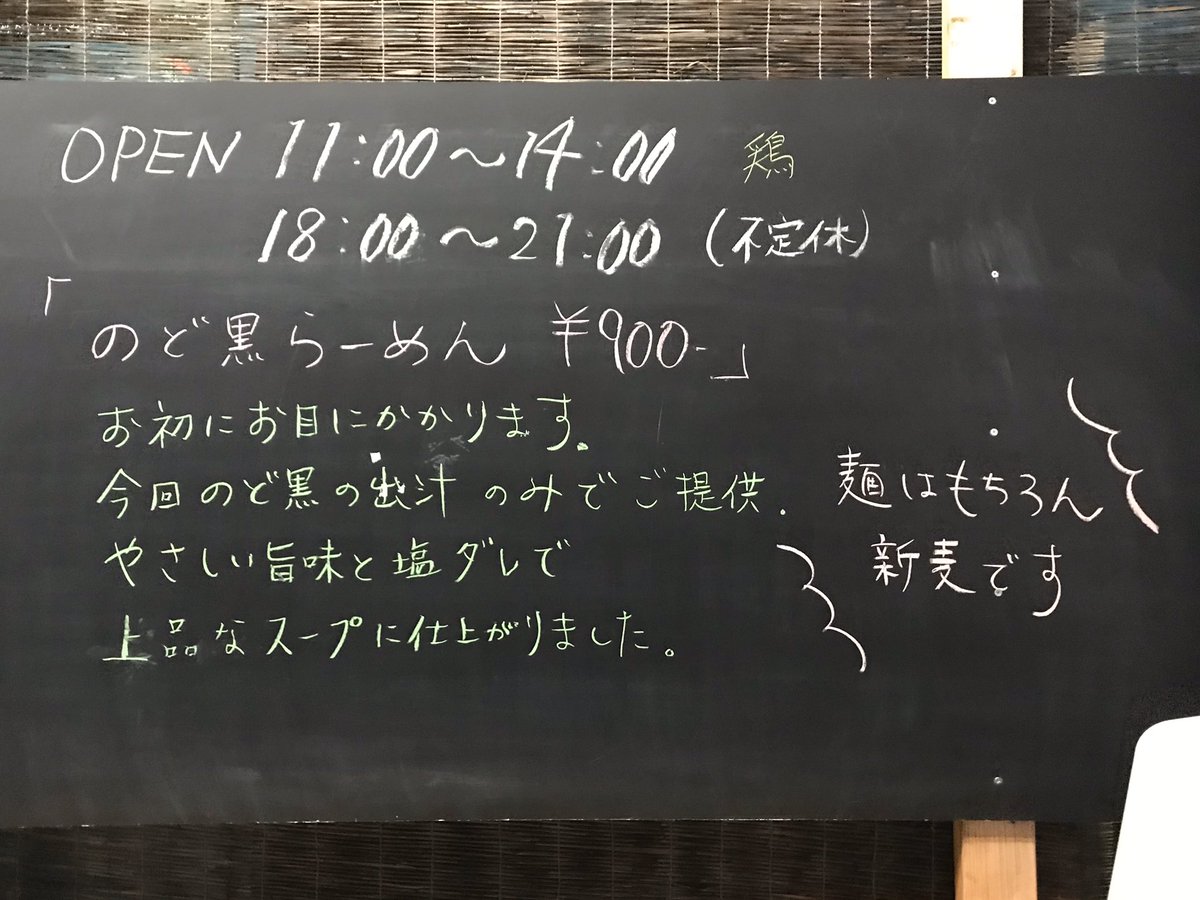 OPEN 11:00〜14:00 鶏
18:00〜21:00 (不定休)
「のど黒らーめん ¥900-」
お初にお目にかかります。
今回のど黒の出汁のみでご提供.
やさしい旨味と塩ダレで
上品なスープに仕上がりました。
麺はもちろん
新麦です